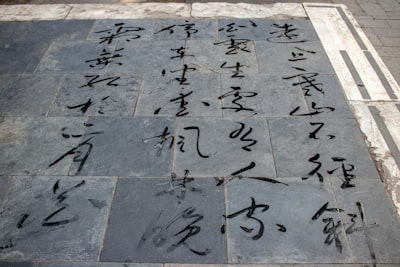 远上寒山石径斜
白云生处有人家
停车坐爱枫林晚
霜叶红於二月花